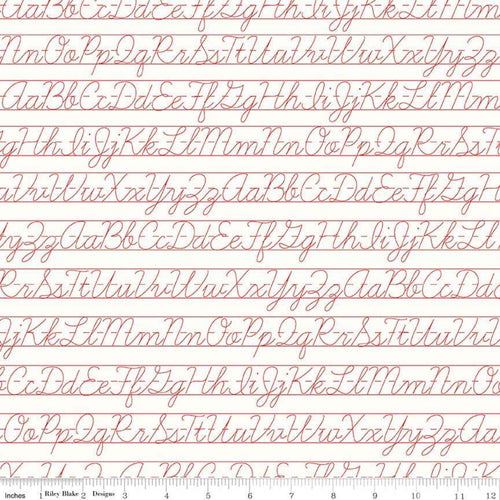 AaBbCcDdEeFfGgHhIiJjKkLlM
NnOoPpQqRrSsTtUuVvWwXxYyZz
AaBbCcDdEeFfGgHhIiJjKkLlMm
gHhIiJjKkLlMmNnOoPpQqRrSs
uVvWwXxYyZzAaBbCcDdEeFfGgH
yZzAaBbCcDdEeFfGgHhIiJjKkL
RrSsTtUuVvWwXxYyZzAaBbCcDd
jKkLlMmNnOoPpQqRrSsTtUuVv
CcDdEeFfGgHhIiJjKkLlMmNn
OoPpQqRrSsTtUuVvWwXxYyZz
inches 1 Riley Blake 2 Designs 3 4 5 6 7 8 9 10 11 12